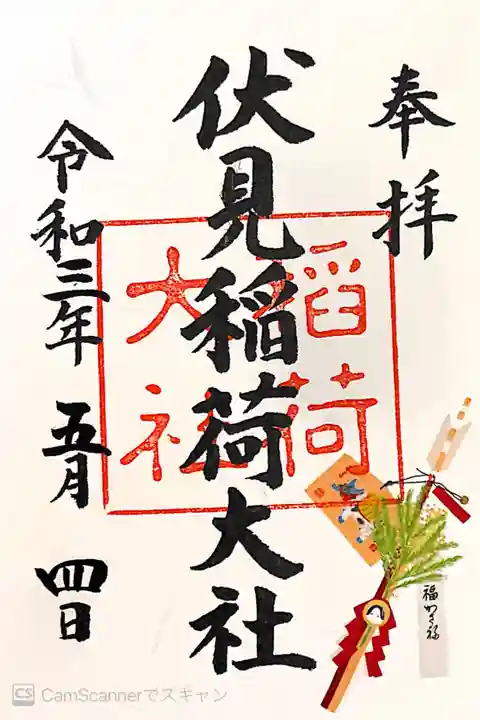 奉拝
伏見稲荷大社
稲荷
大社
令和三年 五月 四日
CS CamScannerでスキャン